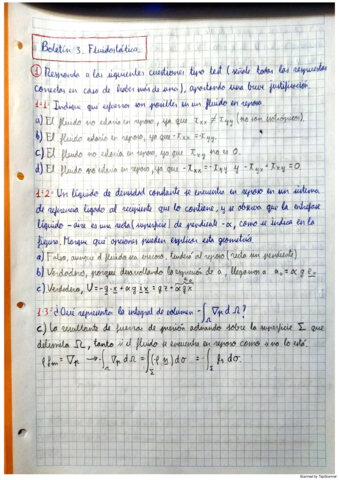 Boletín 3. Fluidostática.
① Responda a las siguientes cuestiones tipo test (señale todas las respuestas
correctas en caso de haber más de una), aportando una breve justificación.
1.1. Indique qué esfuerzos son posibles en un fluido en reposo.
a) El fluido no estaría en reposo, ya que τxx ≠ τyy (no son isótropos).
b) El fluido estaría en reposo, ya que -τxx = -τyy.
c) El fluido no estaría en reposo, ya que τxy no es 0.
d) El fluido no estaría en reposo, ya que -τxx = -τyy y -τyx = τxy = 0
1.2. Un líquido de densidad constante se encuentra en reposo en un sistema
de referencia ligado al recipiente que lo contiene, y se observa que la interfase
líquido-aire es una recta (superficie) de pendiente -α, como se indica en la
figura. Marque qué opciones pueden explicar esta geometría.
a) Falso, aunque el fluido sea viscoso, tendería al reposo (recta sin pendiente)
b) Verdadero, porque desarrollando la expresión de a, llegamos a a₀ = αg
c) Verdadero, U = -g·x + αg i x = gz + αgx
1.3. ¿Qué representa la integral de volumen -∫Ω ∇p dΩ?
c) La resultante de fuerzas de presión actuando sobre la superficie Σ que
delimita Ω, tanto si el fluido se encuentra en reposo como si no lo está.
ρfm = ∇p → -∫Ω ∇p dΩ = ∫Σ dσ = -∫Σ dσ.
Scanned by TapScanner